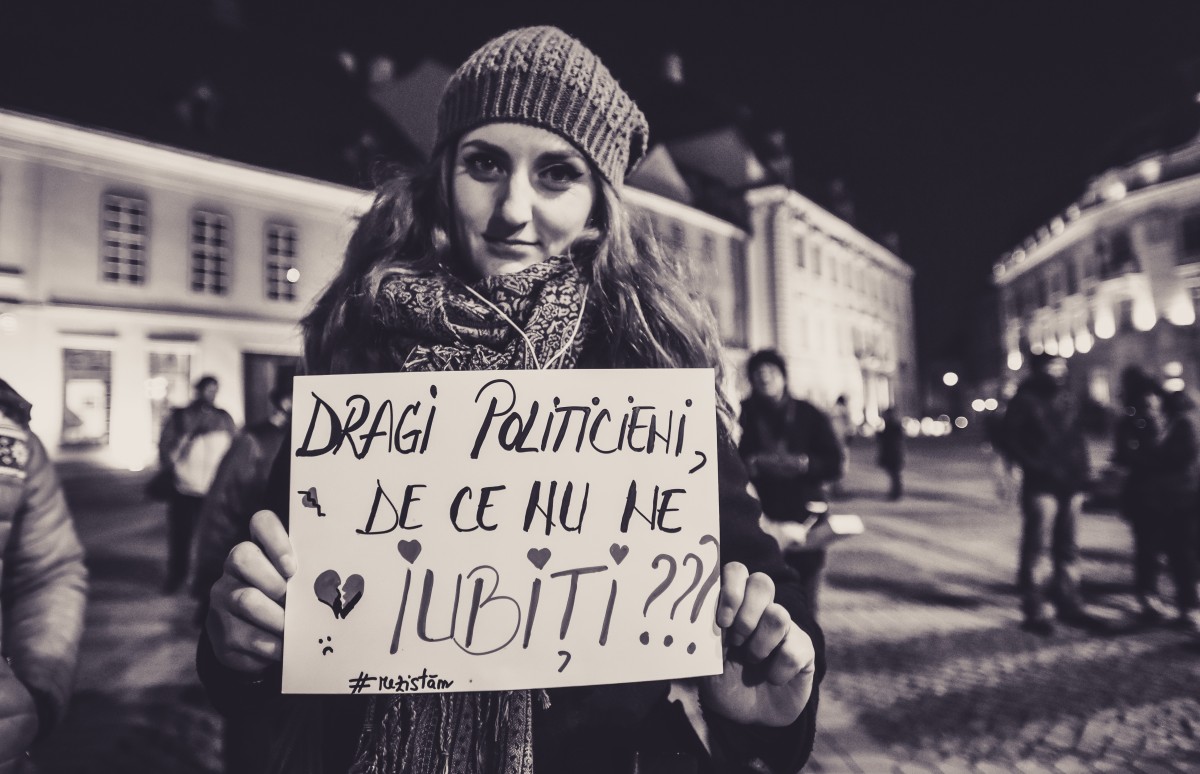 DRAGI POLITICIENI,
DE CE NU NE
IUBIȚI???
#rezistăm